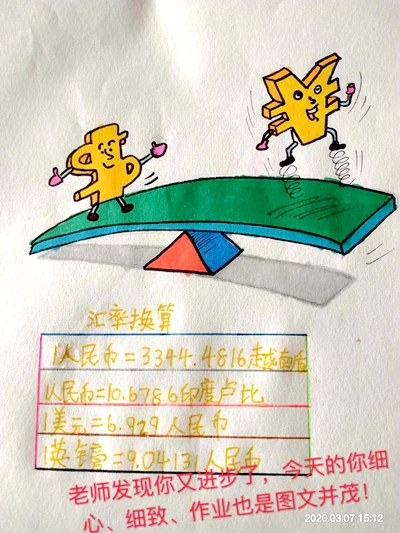 汇率换算
1人民币=3344.4816越南盾
1人民币=10.6786印度卢比
1美元=6.929人民币
1英镑=9.04131人民币
老师发现你又进步了，今天的你细
心、细致、作业也是图文并茂！
2020.03.07 15:12